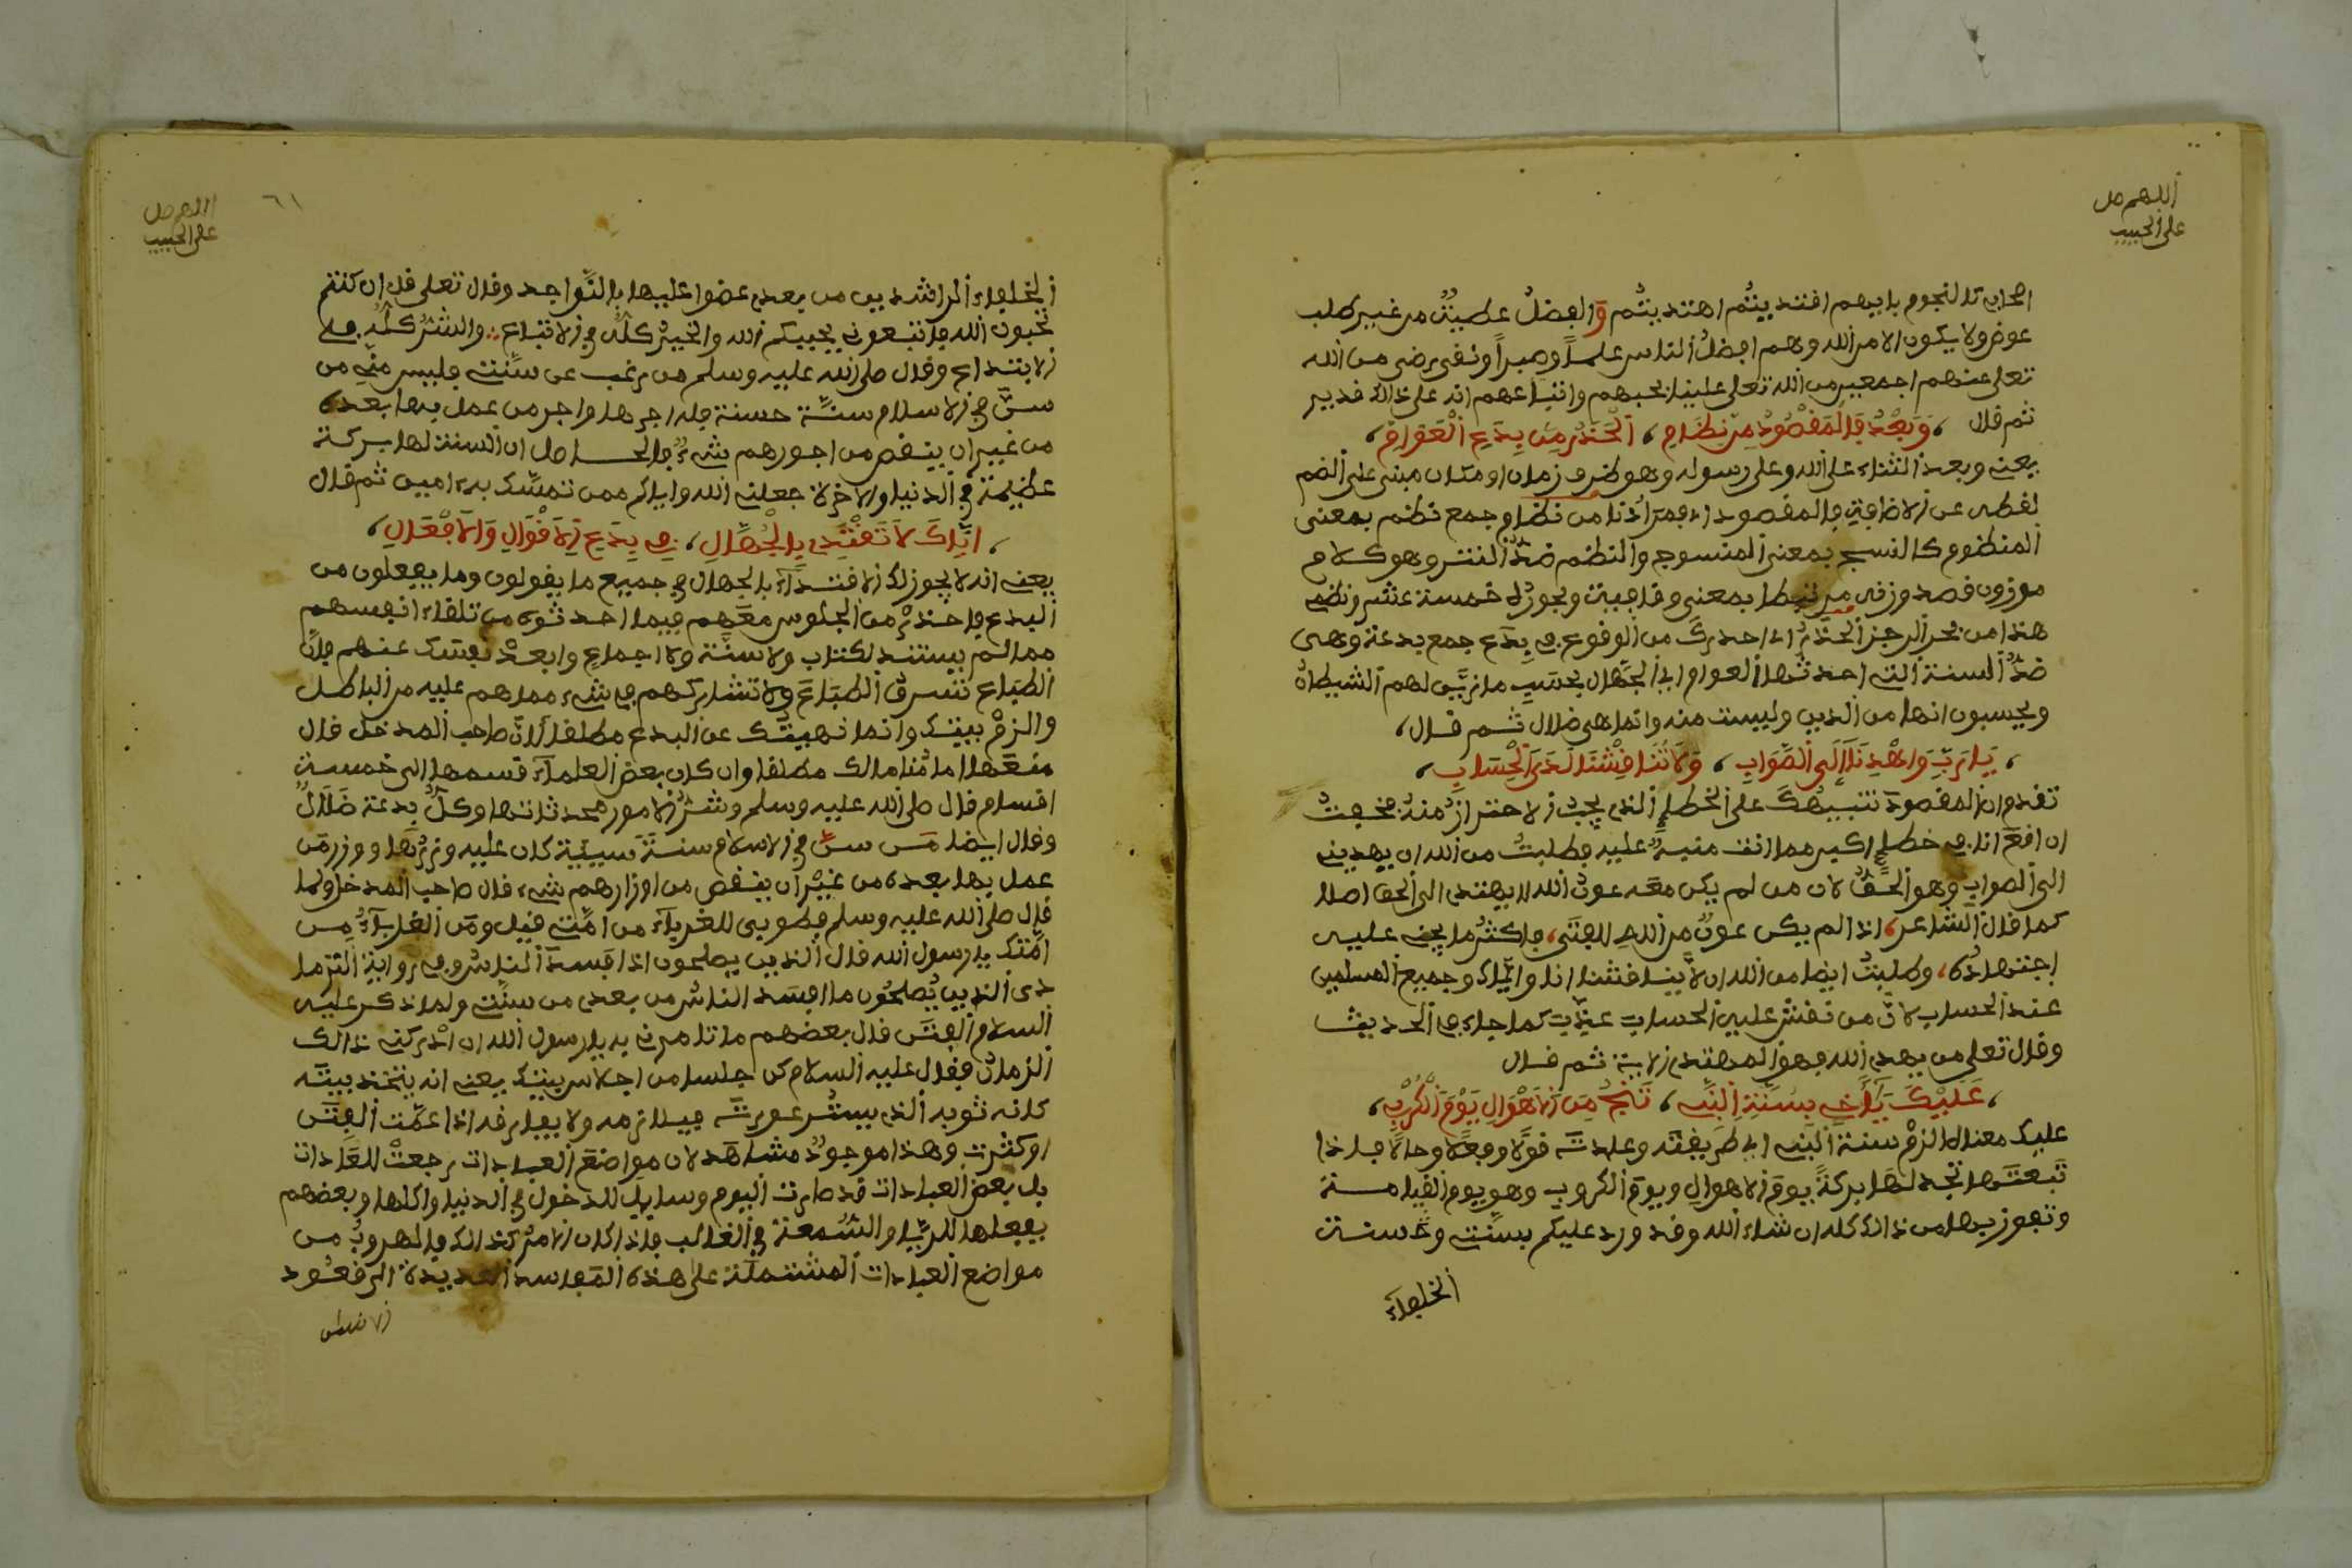 اللهم صل
على الحبيب
اصحابي كالنجوم بايهم افتديتُم اهتديتُم والفضلُ عطيةٌ من غير طلب
عوض ولا يكون الا من الله وهم افضلُ الناس علماً وصبراً ونفى رضي من الله
تعلى عنهم اجمعين من الله تعلى علينا بحبهم واتباعهم انه على ذالك فدير
ثم فال ، وَبَعْدُ فَالمَفْصُودُ مِن نِظَامِ ، اَلْحَذَرُ مِن بِدَعِ الْعَوَامِ ،
يعنى وبعد الثناء على الله وعلى رسوله وهو ظرف زمان او مكان مبنى على الضم
لفطعه عن الاضافة فالمفصود اى فمرادنا من نظام جمع نظم بمعنى
المنظوم كالنسج بمعنى المنسوج والنظم ضدُّ النثر وهو كلام
موزون فصد وزنه مرتبطا بمعنى وفافية وبحوره خمسة عشر ونظم
هذا من بحر الرجز الحذرُ اى احذرك من الوفوع في بِدَع جمع بدعة وهى
ضدُّ السنة التى احدثها العوام اى الجهال بحسَب ما زيَّن لهم الشيطان
ويحسبون انها من الدين وليست منه وانما هى ضلال ثم فال ،
، يَا رَبِّ وَاهْدِنَا إِلَى الصَّوَابِ ، وَلاَ تُنَافِشْنَا لَدَى الْحِسَابِ ،
تفدم ان المفصود تنبيهُكَ على الخطإ الذى يجبُ الاحترازُ منهُ فخفتُ
ان افعَ انا في خطإ اكبر مما انت منبهٌ عليه فطلبتُ من الله ان يهدينى
الى الصواب وهو الحقُّ لان من لم يكن معه عون الله لا يهتدى الى الحق اصلا
كما فال الشاعر ، اذا لم يكن عونٌ من الله للفتى ، فاكثرُ ما يجنى عليه
اجتهادُه ، وطلبتُ ايضا من الله ان لا ينافشنا انا وايَّاك وجميع المسلمين
عند الحساب لانَّ من نفش عليه الحساب عذِّب كما جاء في الحديث
وفال تعلى من يهدى الله فهو المهتدى الاية ثم فال
، عَلَيْكَ يَا أَخِى بِسُنَّةِ النَّبِى ، تَنْجُ مِنَ الاَهْوَالِ يَوْمَ الْكُرَبِ ،
عليك معناه الزمْ سنة النبى اى طريفته وعادته فولاً وفعلاً وحالاً فاذا
تبعتَها تجد لها بركةً يوم الاهوال ويوم الكروب وهو يوم الفيامة
وتفوز بها من ذالك كله ان شاء الله وفد ورد عليكم بسنتى وسنة
الخلفاء
اللهم صل
على الحبيب
٦١
الخلفاء الراشدين من بعدى عضوا عليها بالنَّواجد وفال تعلى فل ان كنتم
تحبون الله فاتبعونى يحببكم الله والخيرُ كلُّه في الاتباع ∴ والشرُّ كلُّه في
الابتداع وفال صلى الله عليه وسلم من رغب عن سُنتى فليس منِّى من
سنَّ في الاسلام سنَّة حسنة فله اجرها واجر من عمل بها بعده
من غير ان ينفص من اجورهم شىءٌ والحاصل ان السنة لها بركة
عظيمة في الدنيا والاخرة جعلنى الله واياكم ممن تمسَّك به ءامين ثم فال
، اِيَّاكَ لاَ تَفْتَدِى بِالْجُهَّالِ ، فِى بِدَعِ الاَفْوَالِ وَالاَفْعَالِ ،
يعنى انه لا يجوز لك الافتداء بالجهال في جميع ما يفولون وما يفعلون من
البدع فاحذرْ من الجلوس معهم فيما احدثوه من تلفاء انفسهم
مما لم يستند لكتاب ولا سنَّة ولا اجماع وابعدْ نفسك عنهم فان
الطباع تسرق الطباعَ ولا تشاركهم في شىء مما هم عليه من الباطل
والزمْ بيتك وانما نهيتُك عن البدع مطلفا لانَّ صاحب المدخل فال
منعَها امامُنا مالك مطلفا وان كان بعض العلماء فسمها الى خمسة
افسام فال صلى الله عليه وسلم وشرُّ الامور محدثاتها وكلُّ بدعة ضَلالٌ
وفال ايضا مَن سنَّ في الاسلام سنةً سيئة كان عليه وزرُها ووزر من
عمل بها بعده من غيْر ان ينفص من اوزارهم شىء فال صاحب المدخل ولما
فال صلى الله عليه وسلم فطوبى للغرباء من امَّتى فيل ومَن الغرباءُ مِن
امَّتك يا رسول الله فال الذين يصلحون اذا فسد الناسُ وفي رواية الترما
ذى الذين يُصلحُون ما افسد الناسُ من بعدى من سنَّتى ولما ذكر عليه
السلام الفتَن فال بعضهم ما تامرنى به يا رسول الله ان ادركنى ذالك
الزمانُ ففال عليه السلام كن حلسا من احلاس بيتك يعنى انه يتخذ بيته
كانه ثوبه الذى يستُر عورتَه فيلازمه ولا يفارفه اذا عمَّت الفِتن
وكثرت وهذا موجودٌ مشاهَد لان مواضعَ العبادات رجعتْ للعادات
بل بعضُ العبادات فد صارت اليوم وسايلَ للدخول في الدنيا واكلها وبعضهم
يفعلها للرِّيا والسُّمعة في الغالب فاذا كان الامرُ كذالك فالهروبُ من
مواضع العبادات المشتملة على هذه المفاسد العديدة الى فعُود